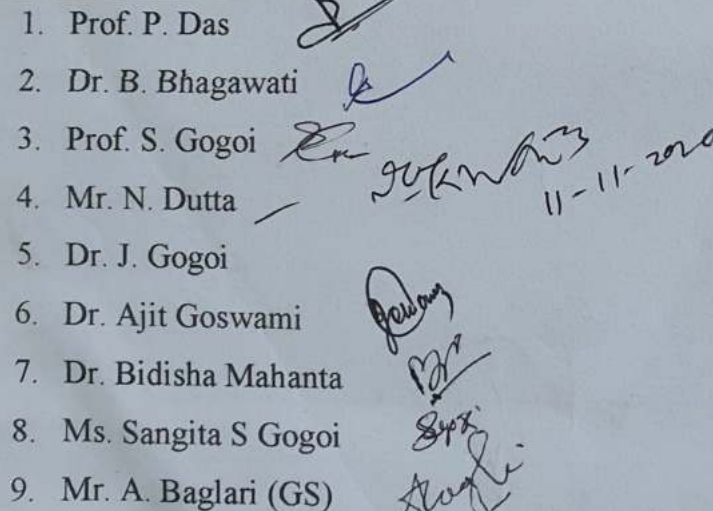 1. Prof. P. Das
2. Dr. B. Bhagawati
3. Prof. S. Gogoi
4. Mr. N. Dutta
11-11-2020
5. Dr. J. Gogoi
6. Dr. Ajit Goswami
7. Dr. Bidisha Mahanta
8. Ms. Sangita S Gogoi
9. Mr. A. Baglari (GS)